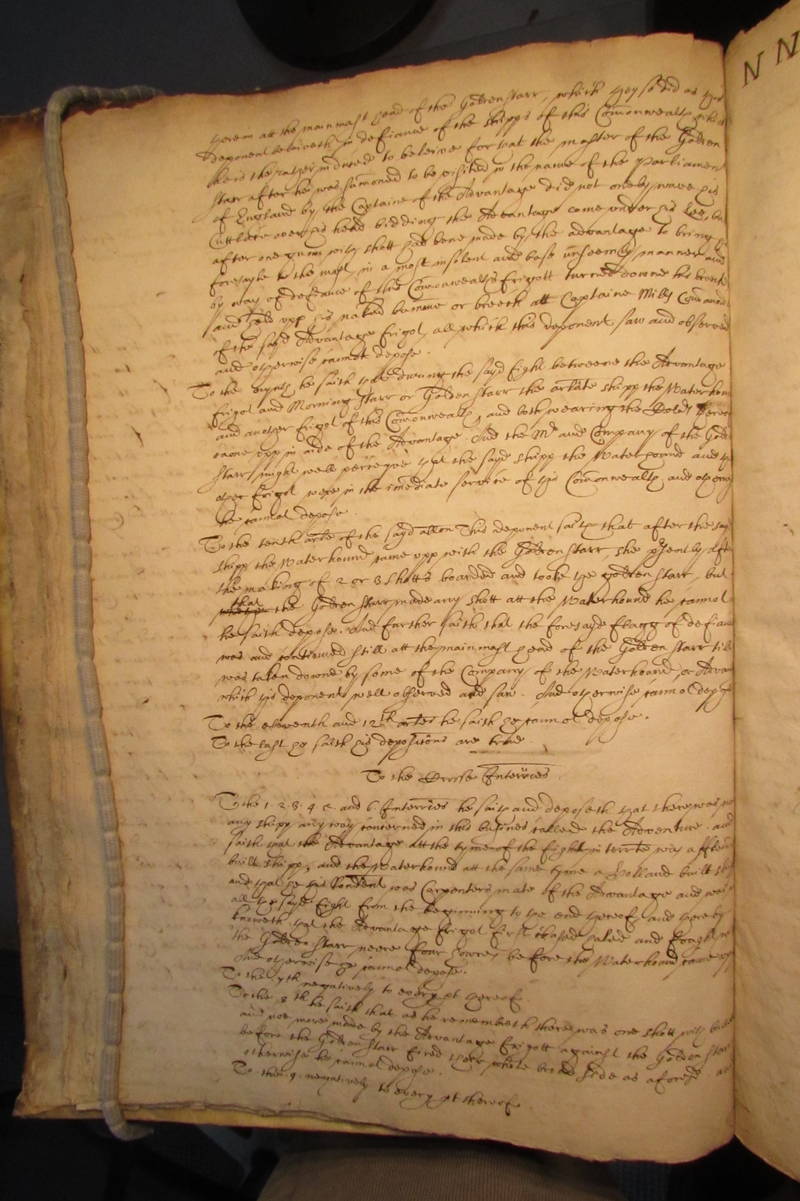 them at the mainmast head of the Golden Starr, which hee soe did as this
deponent beleiveth in defiance of the shipps of this Comonwealth which
hee is the rather induced to beleive for that the master of the Golden
Starr after he was sumoned to be visited in the name of the Parliament
of England by the Captaine of the Advantage did not onely wave his
Cuttleax over his head bidding the Advantage come under his Lee, but
after one gunn with shott had bene made by the advantage to bring the
foresayle to the mast, in a most insolent and base unseemely manner and
by way of defiance of this Comonwealths frigott turned downe his breeches
and held upp his naked bumme or breech att Captaine Mills Comander
of the sayd Advantage frigot, all which this deponent saw and observed
and otherwise cannot depose.
To the nynth he saith that during the sayd fight betweene the Advantage
frigot and Morning Starr or Golden Starr the arlate shipp the Waterhound
and another frigot of this Comonwealth, and both wearing the
came upp in aide of the Advantage. And the Mr and Company of the Golden
Starr might well perceave that the sayd shipp the Waterhound and the
other frigot were in the imediate service of this Comonwealth and otherwise
he cannot depose.
To the tenth arle of the sayd allon This deponent saith that after the sayd
shipp the Waterhound came upp with the Golden Starr she presently after
the making of 2 or 3 shotts boarded and tooke the golden Starr, but
that the Golden Starr made any shott att the Waterhound he cannot
he saith depose. And further saith that the foresayd flagg of defiance
was and continued still att the mainmast head of the Golden Starr till it
was taken downe by some of the Company of the Waterhound or Advantage
which this deponent well observed and saw. And otherwise cannot depose
To the eleventh and 12th arles he saith he cannot depose.
To the last he saith his depositions are true
To the Crosse Interries
To the 1. 2. 3. 4. 5 and 6 Interries he saith and deposeth that there was not
any shipp any way concerned in this busines called the Adventure. and
saith that the Advantage att the tyme of the fight interrate was a
built shipp, and the Waterhound att the same tyme a Holland built shipp
and that he this Rendent was Carpenters mate of the Advantage and was in
all the sayd fight from the beginning to the end thereof, and thereby
knoweth that the Advantage frigot first chased hailed and fought with
the Golden Starr neere four howres before the Waterhound came upp
And otherwise he cannot depose.
To the 7th negatively to every pt thereof.
To the 8th he saith that as he remembreth there was one shott with bullet
and noe more made by the Advantage frigott against the Golden Starr
before the Golden Starr fired her whole broad side as aforesd and
otherwise he cannot depose.
To the 9. negatively to every pt thereof.
N N